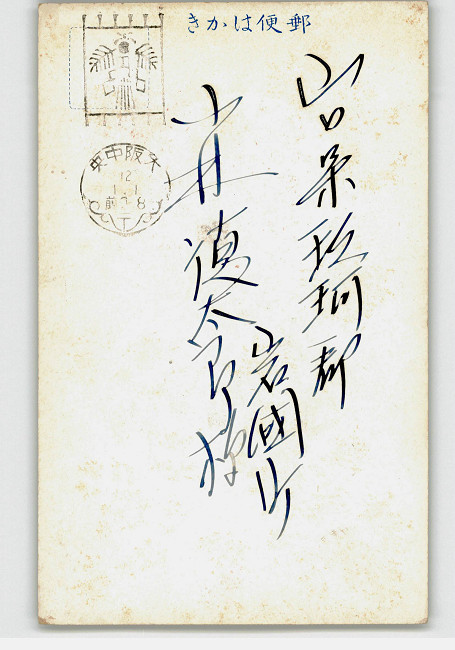 きかは便郵
大阪中央
12
1.1
前0-8
山口県玖珂郡
岩國町
井徳太郎様